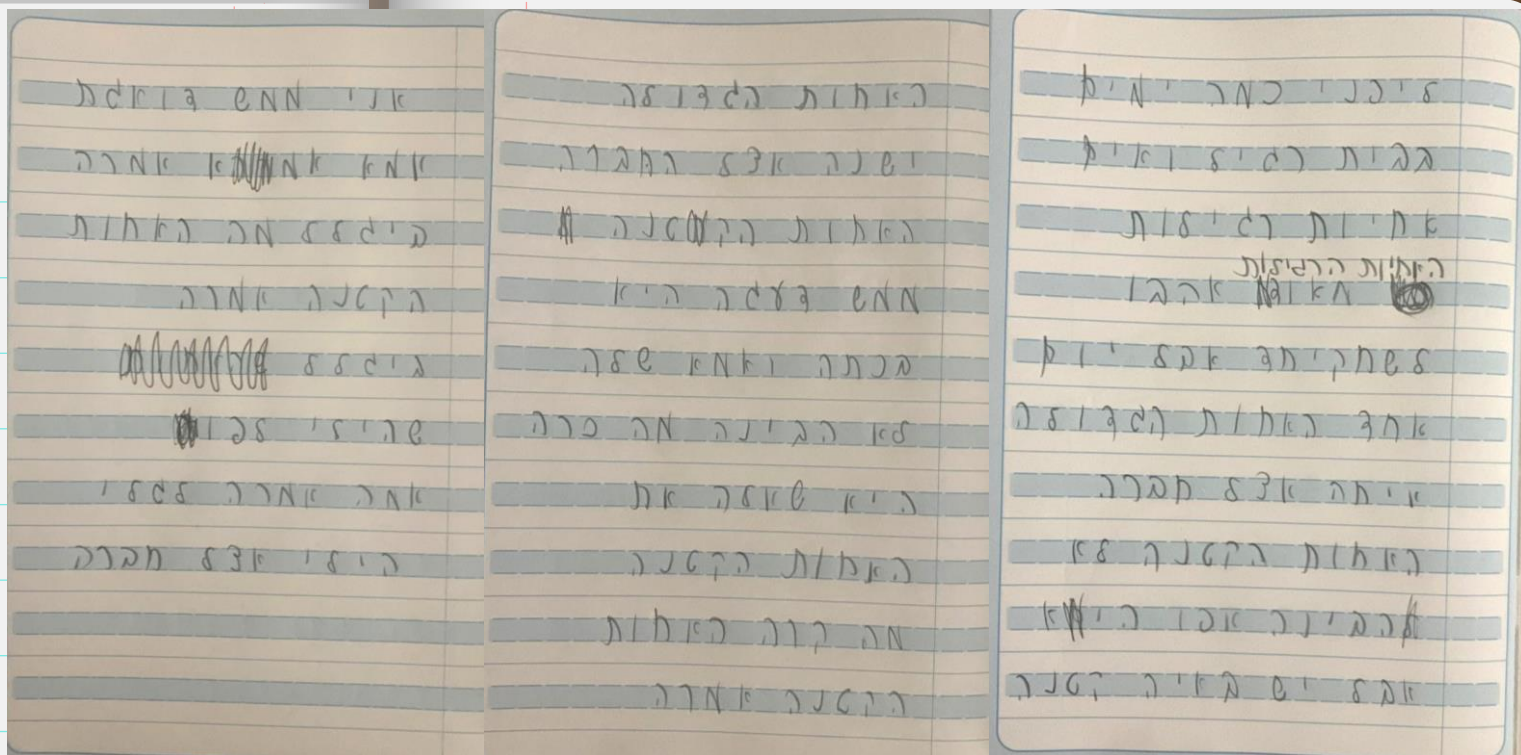 ליפני כמה ימים
בבית רגיל ואים
אחיות רגילות
האחיות הרגילות
מאוד אהבו
לשחק יחד אבל יום
אחד האחות הגדולה
איתה אצל חברה
האחות הקטנה לא
הבינה אפו היא
אבל יש באיה קטנה
האחות הגדולה
ישנה אצל החברה
האחות הקטנה
ממש דעגה היא
בכתה ואמא שלה
לא הבינה מה כרה
היא שאלה את
האחות הקטנה
מה קרה האחות
הקטנה אמרה
אני ממש דואגת
אמא אמא אמרה
ביגלל מה האחות
הקטנה אמרה
ביגלל
שהילי לפו
אמה אמרה לגלי
הילי אצל חברה